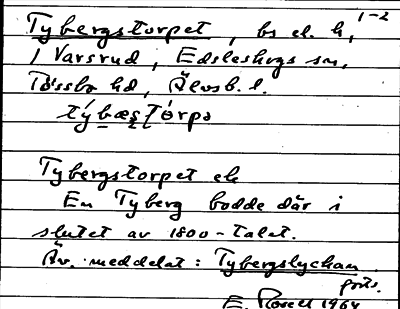 1-2
Tybergstorpet, bs el. h,
/ Varsrud, Edsleskogs sn,
Tössbo hd, Älvsb. l.
týbæʂtórpə
Tybergstorpet eh
En Tyberg bodde där i
slutet av 1800-talet.
Äv. meddelat: Tybergslyckan
forts.
E. Rosell 1964